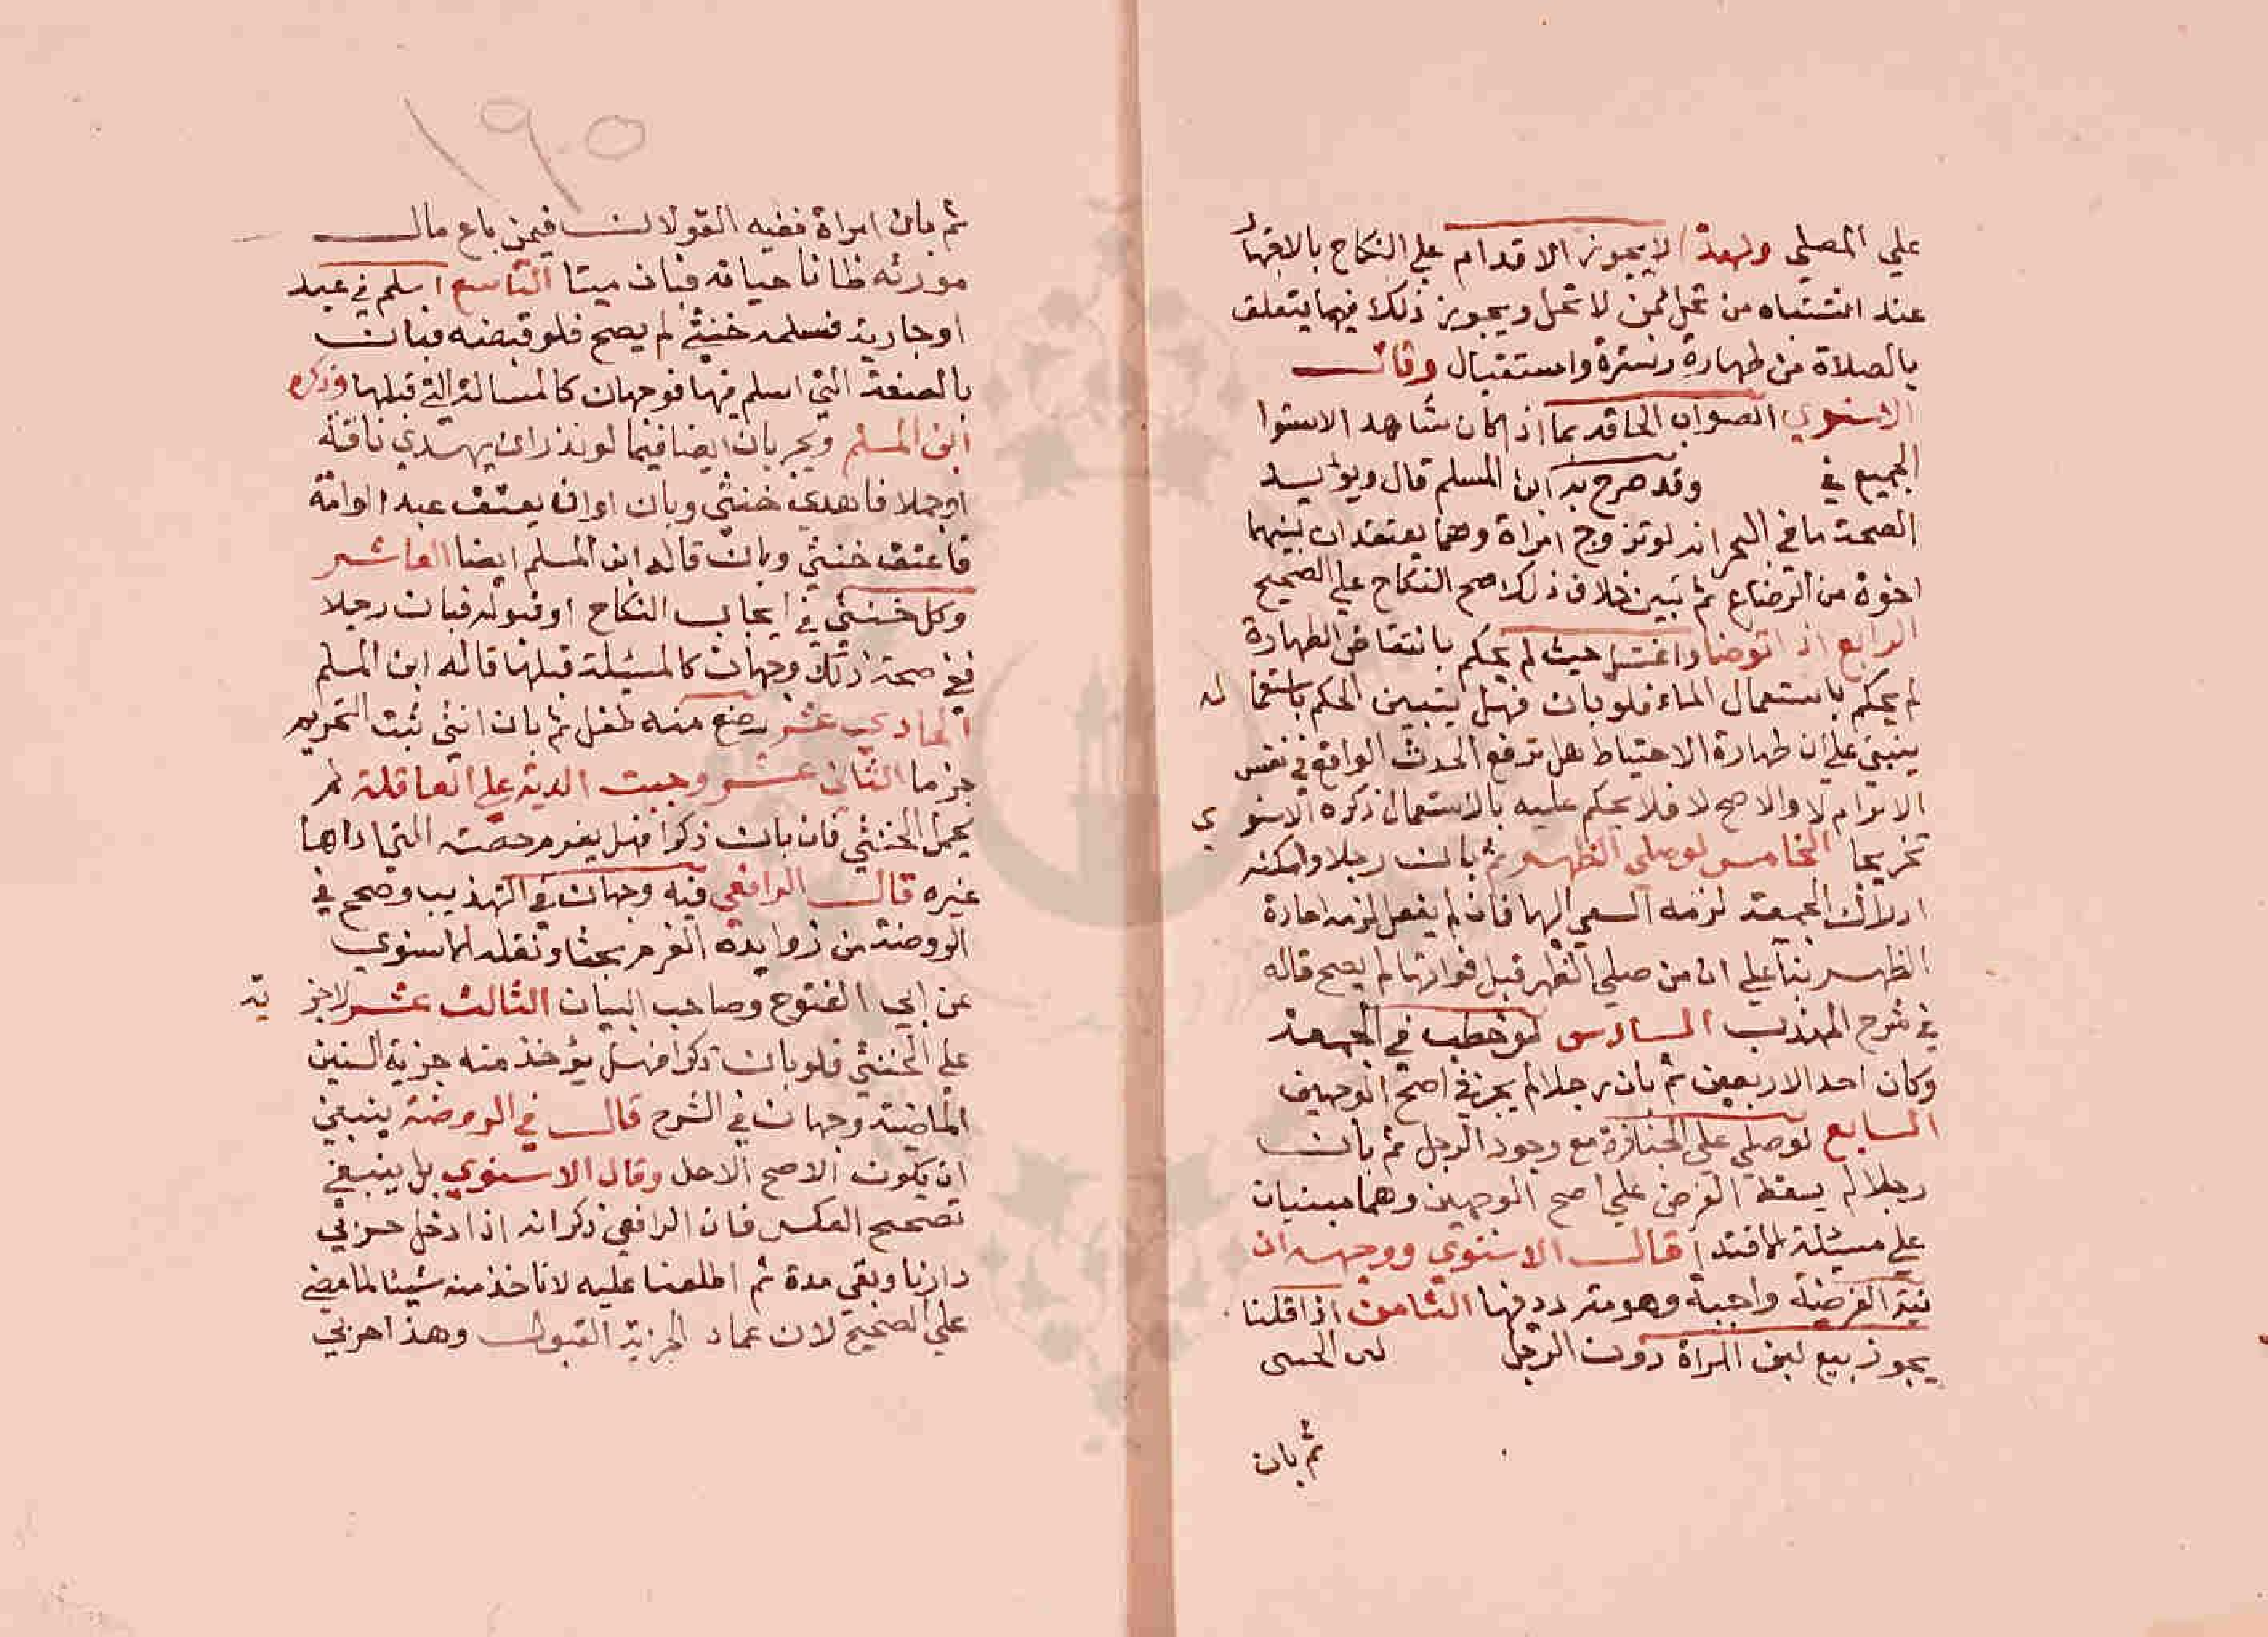 علي المصلي ولهذا لا يجوز الاقدام علي النكاح بالاجتهاد
عند اشتباه من تحل لمن لا تحل ويجوز ذلك فيما يتعلق
بالصلاة من طهارة وسترة واستقبال وقال
الاسنوي الصواب الحاقه بما اذا كان شاهد الاستوا
الجميع في وقد صرح به ابن المسلم قال ويؤيد
الصحة ما في البحر انه لو تزوج امراة وهما يعتقدان بينهما
اخوة من الرضاع ثم تبين خلاف ذلك صح النكاح علي الصحيح
الرابع اذا توضا واغتسل حيث لم يحكم بانتقاض الطهارة
لم يحكم باستعمال الماء فلو بان فهل يتبين الحكم باستعماله
ينبني علي ان طهارة الاحتياط هل ترفع الحدث الواقع في نفس
الامر ام لا والاصح لا فلا يحكم عليه بالاستعمال ذكره الاسنوي
تخريجا الخامس لو صلي الظهر ثم بان رجلا وامكنه
ادراك الجمعة لزمه السعي اليها فان لم يفعل لزمه اعادة
الظهر بنا علي ان من صلي الظهر قبل فواتها لم يصح قاله
في شرح المهذب السادس لو خطب في الجمعة
وكان احد الاربعين ثم بان رجلا لم يجز في اصح الوجهين
السابع لو صلي علي الجنازة مع وجود الرجل ثم بان
رجلا لم يسقط الفرض علي اصح الوجهين وهما مبنيان
علي مسئلة الاقتدا قال الاسنوي ووجهه ان
نية الفرضية واجبة وهو متردد فيها الثامن اذا قلنا
يجوز بيع لبن المراة دون الرجل
ثم بان
١٩٥
ثم بان امراة ففيه القولان فيمن باع مال
مورثه ظانا حياته فبان ميتا التاسع اسلم في عبد
او جارية فسلمه خنثي لم يصح فلو قبضه فبان
بالصفة التي اسلم فيها فوجهان كالمسالة التي قبلها وذكره
ابن المسلم ويجريان ايضا فيما لو نذر ان يهدي ناقة
او جملا فاهدي خنثي وبان او ان يعتق عبدا او امة
فاعتق خنثي وبان قاله ابن المسلم ايضا العاشر
وكل خنثي في ايجاب النكاح او قبوله فبان رجلا
ففي صحة ذلك وجهان كالمسئلة قبلها قاله ابن المسلم
الحادي عشر رضع منه طفل ثم بان انثي ثبت التحريم
جزما الثاني عشر وجبت الدية علي العاقلة لم
يحمل الخنثي فان بان ذكرا فهل يغرم حصته التي اداها
غيره قال الرافعي فيه وجهان في التهذيب وصحح في
الروضة من زوايده الغرم بحثا ونقله الاسنوي
عن ابي الفتوح وصاحب البيان الثالث عشر لا جزية
علي الخنثي فلو بان ذكرا فهل يؤخذ منه جزية السنين
الماضية وجهان في الشرح قال في الروضة ينبغي
ان يكون الاصح الاخذ وقال الاسنوي بل ينبغي
تصحيح العكس فان الرافعي ذكر انه اذا دخل حربي
دارنا وبقي مدة ثم اطلعنا عليه لا ناخذ منه شيئا لما مضي
علي الصحيح لان عماد الجزية القبول وهذا حربي